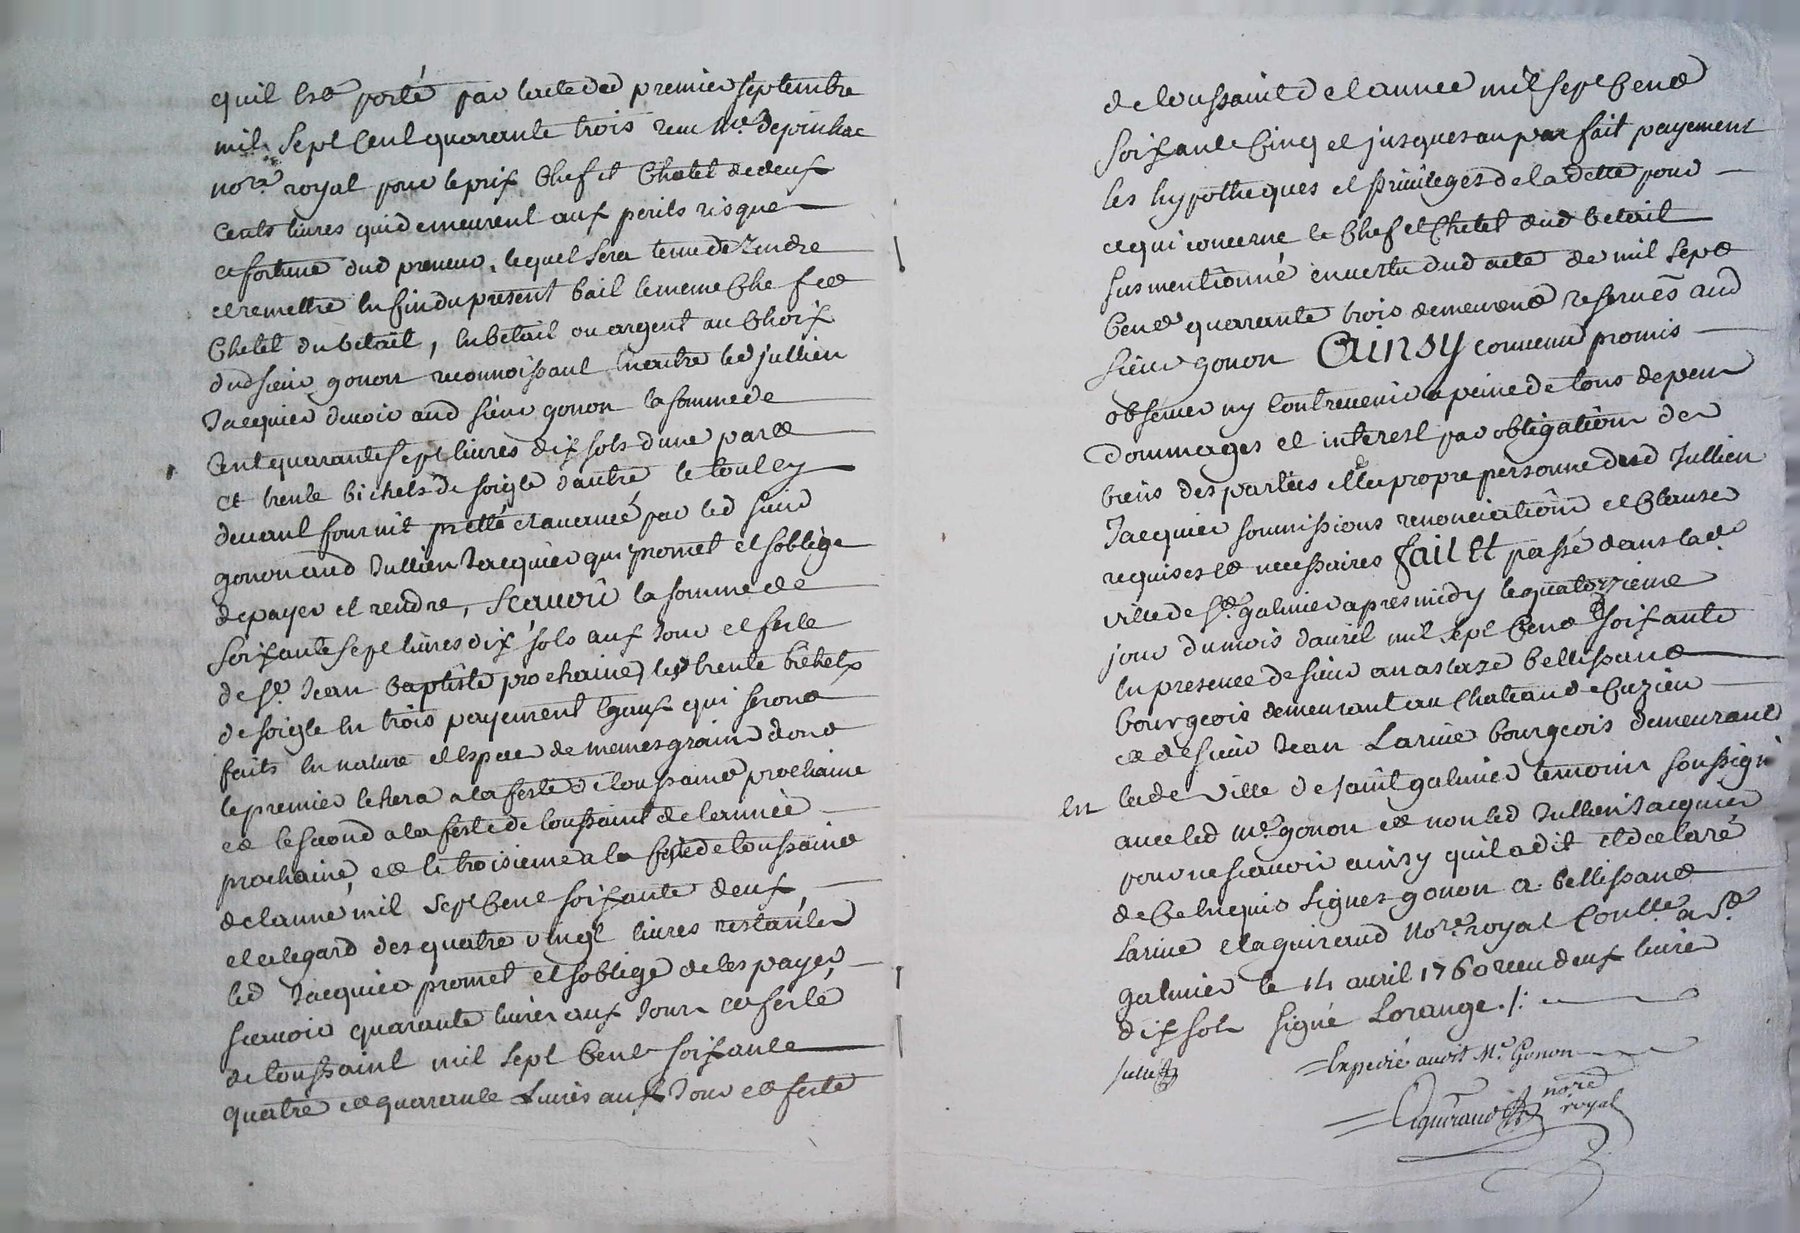 quil est porté par lacte du premier septembre
mil sept cent quarante trois receu Me. Depinhac
nore. royal pour le prix chef et chatel de deux
cents livres qui demeurent aux perils risque
et fortune dud preneur, lequel sera tenu de rendre
et remettre en fin du present bail le meme chef et
chetel du betail, en betail ou argent au choix
dud sieur gonon reconnoissant en outre led jullien
Jacquier devoir aud sieur gonon la somme de
cent quarante sept livres dix sols dune part
et trente bichets de soigle dautre le tout cy
devant fournit pretté et avancé par led sieur
gonon aud Jullien Jacquier qui promet et soblige
de payer et rendre, scavoir la somme de
soixante sept livres dix sols aux Jour et feste
de st. Jean baptiste prochaine, les trente bichets
de soigle en trois payement egaux qui seront
faits en nature et espece de memes grain dont
le premier echera a la feste de toussaint prochaine
et le second a la feste de toussaint de lannée
prochaine, et le troisieme a la feste de toussaint
de lanné mil sept cent soixante deux,
et a legard des quatre vingt livres restantes
led Jacquier promet et soblige de les payer
scavoir quarante livres aux Jour et feste
de toussaint mil sept cent soixante
quatre et quarante Livres aux Jour et feste
de toussaint de lannee mil sept cent
soixante cinq et jusques au parfait payement
les hypotheques et privileges de la dette pour
ce qui concerne le chef et chetel dud betail
sus mentionné en vertu dud acte de mil sept
cent quarante trois demeurent reservés aud
sieur gonon Ainsy convenu promis
observer ny contrevenir a peine de tous depens
dommages et interest par obligation de
biens des parties et la propre personne dud Jullien
Jacquier soumissions renonciation et clauses
requises et necessaires fait Et passé dans lad.
ville de st. galmier apres midy le quatorzieme
jour du mois davril mil sept cent soixante
en presence de sieur anastaze bellissant
bourgeois demeurant au chateau de Cuzieu
et de sieur Jean Larive bourgeois demeurant
en lade ville de saint galmier temoins soussigné
avec led Me. gonon et non led Jullien Jacquier
pour ne scavoir ainsy quil a dit et declaré
de ce enquis signes gonon a. bellissant
Larive et aguiraud Nore. royal Conlle. a st.
galmier le 14 avril 1760 receu deux livres
dix sols signé Lorange ./.
Expedié audit Me. Gonon
Aguiraud nore
royal